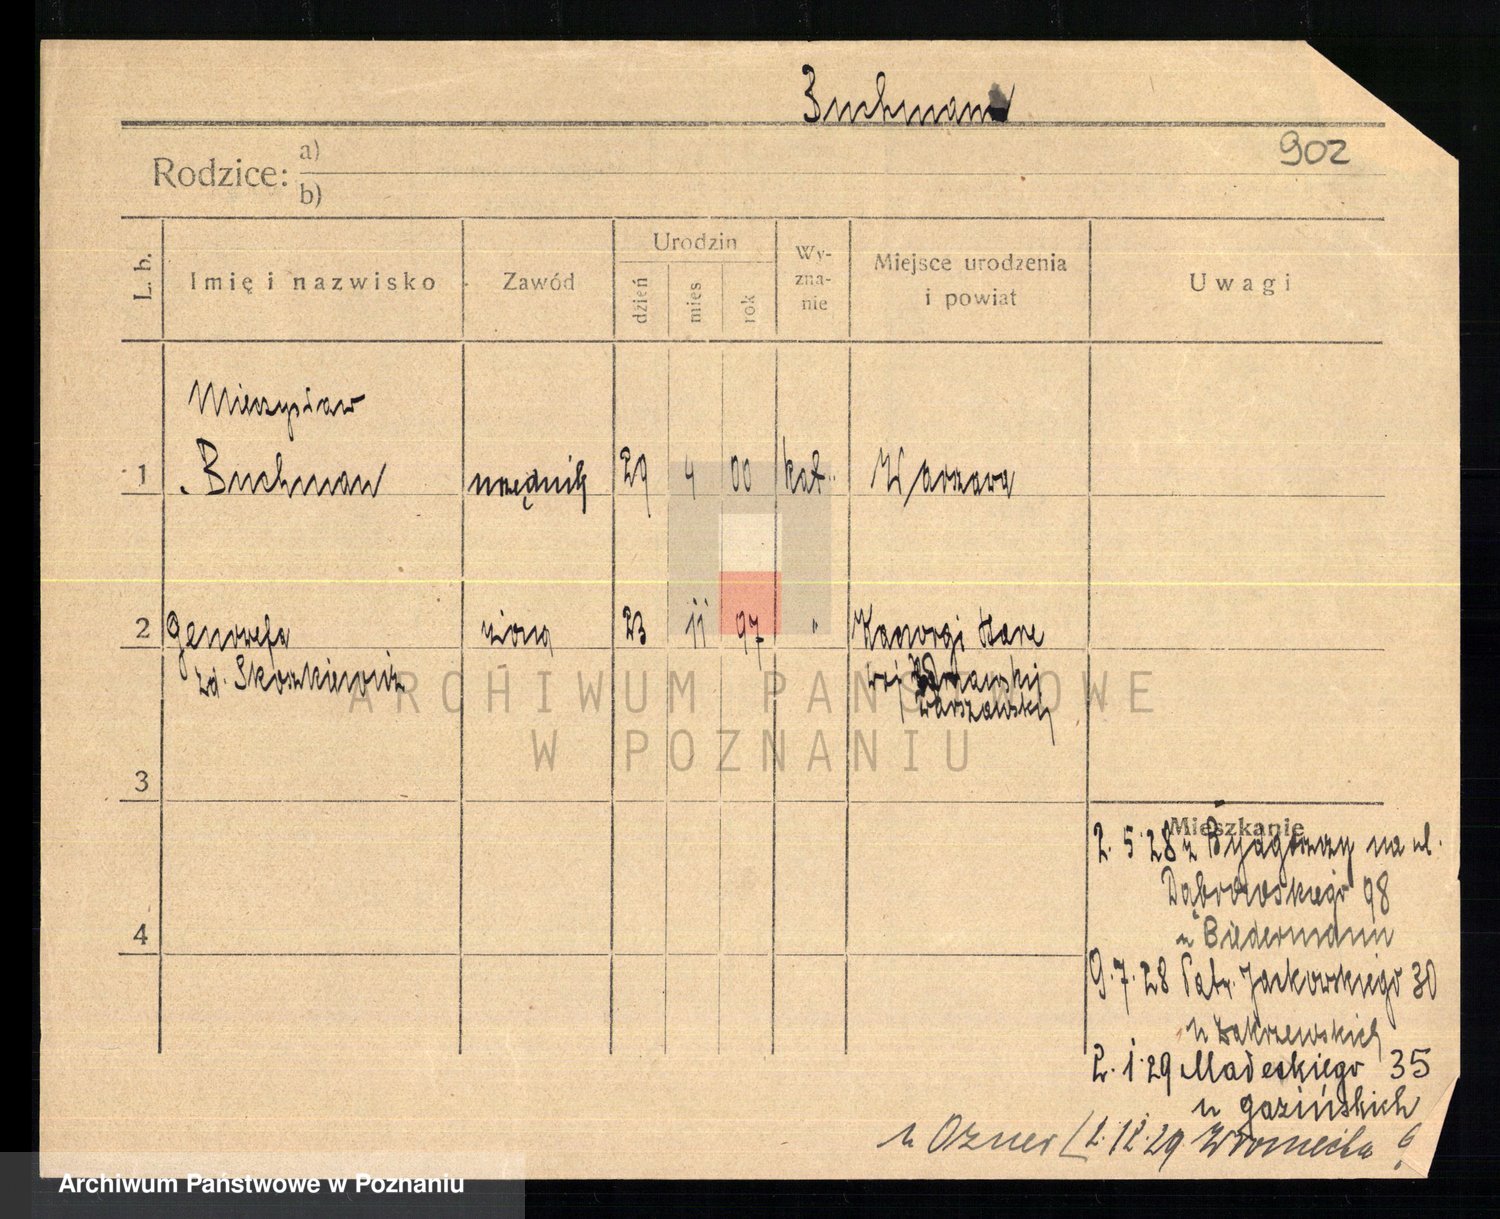 Buchman
902
Rodzice: a)
b)
L. b.
Imię i nazwisko
Zawód
Urodzin
dzień
mies
rok
Wy-
zna-
nie
Miejsce urodzenia
i powiat
Uwagi
Mieczysław
1 Buchman urzędnik 29 4 00 kat. Warszawa
2 Genowefa żona 23 11 97 " Stare
zd.
warszawski
ARCHIWUM PAŃSTWOWE
W POZNANIU
3
Mieszkanie
2.5.28 z Bydgoszczy na ul.
Dąbrowskiego 98
u Biedermann
4
9.7.28 Patr. Jackowskiego 30
u Zakrzewskich
2.1.29 Madeskiego 35
u
u Ozner 2.12.29 Wroniecka
Archiwum Państwowe w Poznaniu